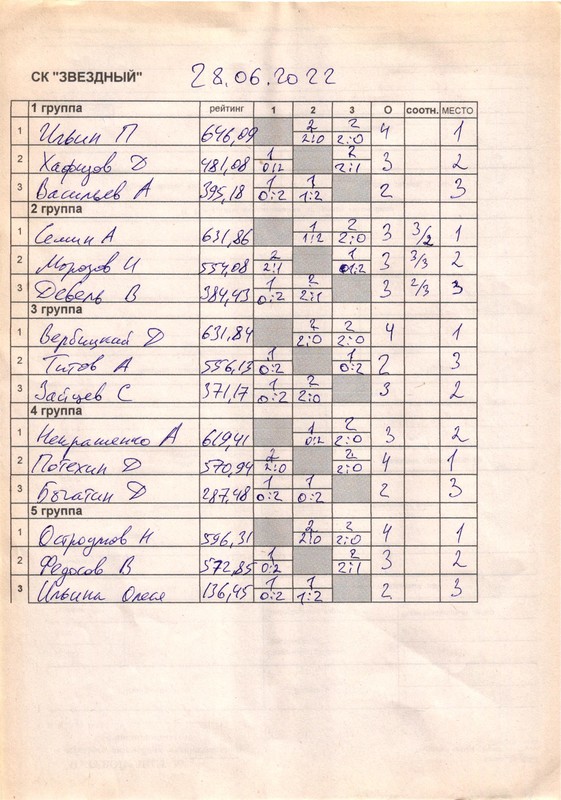 СК "ЗВЕЗДНЫЙ" 28.06.2022
1 группа рейтинг 1 2 3 О соотн. МЕСТО
1 Ильин П 646,09 2 2:0 2 2:0 4 1
2 Хафизов Д 481,08 1 0:2 2 2:1 3 2
3 Васильев А 395,18 1 0:2 1 1:2 2 3
2 группа
1 Семин А 631,86 1 1:2 2 2:0 3 3/2 1
2 Морозов И 554,08 2 2:1 1 1:2 3 3/3 2
3 Девель В 384,43 1 0:2 2 2:1 3 2/3 3
3 группа
1 Вербицкий D 631,84 2 2:0 2 2:0 4 1
2 Титов А 556,13 1 0:2 1 0:2 2 3
3 Зайцев С 371,17 1 0:2 2 2:0 3 2
4 группа
1 Некрашенко А 619,41 1 0:2 2 2:0 3 2
2 Потехин D 570,94 2 2:0 2 2:0 4 1
3 D 287,48 1 0:2 1 0:2 2 3
5 группа
1 Остроумов Н 596,31 2 2:0 2 2:0 4 1
2 Федосов В 572,85 1 0:2 2 2:1 3 2
3 Ильина Олеся 136,45 1 0:2 1 1:2 2 3